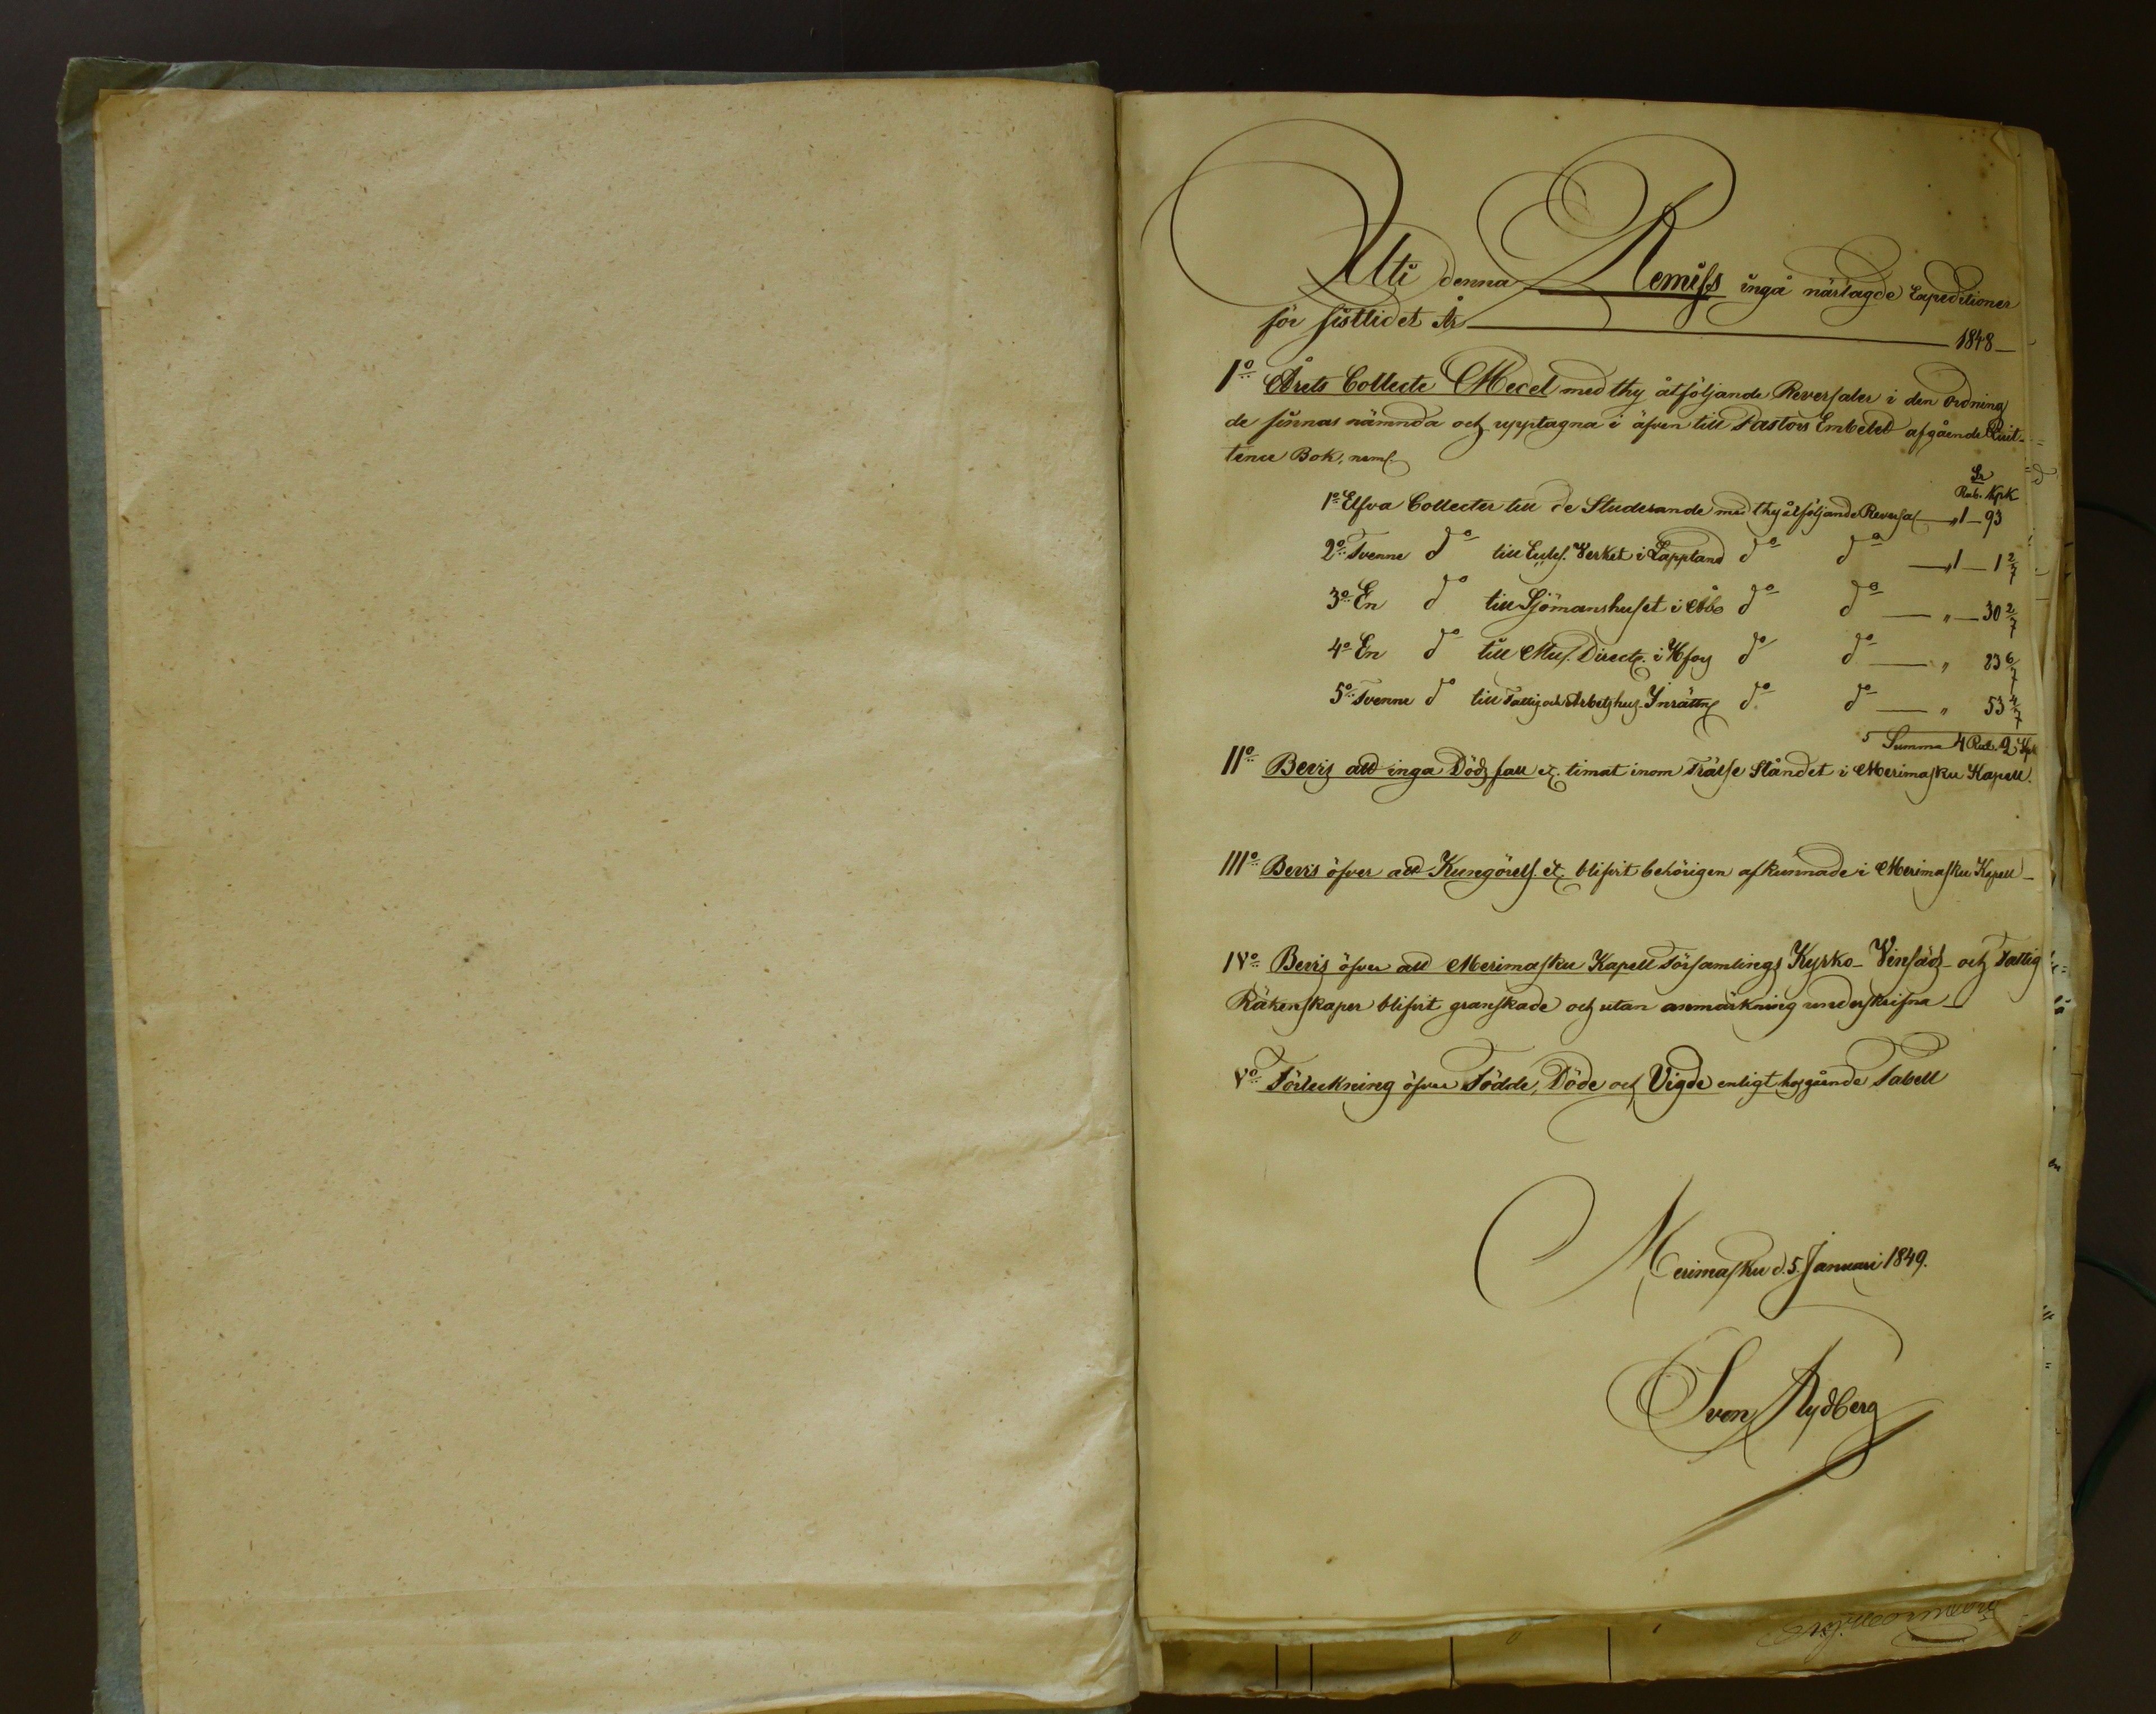 Uti denna Remiss ingå närlagde Expeditioner
för sistlidet År 1848
1º Årets Collecte Medel med thy åtföljande Reversaler i den ordning
de finnas nämnda och upptagna i äfven till Pastors Embetet afgående Quit-
tence Bok, neml.
Sr
Rub. Kpk
1º Elfva Collecter till de Studerande med thy åtföljande Reversal „ 1 — 93
2º Tvenne dº till Eccles. Verket i Lappland dº dº „ 1 — 1 2/7
3º En dº till Sjömanshuset i Åbo dº dº „ — 30 2/7
4º En dº till Mus. Direct. i Hfors dº dº „ 23 6/7
5º Tvenne dº till Fattig och Arbetshus Inrättng dº dº „ 53 4/7
Summa 4 Rub. 2 Kpk
IIº Bevis att inga Dödsfall etc. timat inom Frälse Ståndet i Merimasku Kapell.
IIIº Bevis öfver att Kungörels. etc. blifvit behörigen afkunnade i Merimasku Kapell
IVº Bevis öfver att Merimasku Kapell Församlings Kyrko- Vinsäds- och Fattig
Räkenskaper blifvit granskade och utan anmärkning underskrifna
Vº Förteckning öfver Födde, Döde och Vigde enligt hosgående Tabell
Merimasku d. 5. Januari 1849.
Sven Rydberg